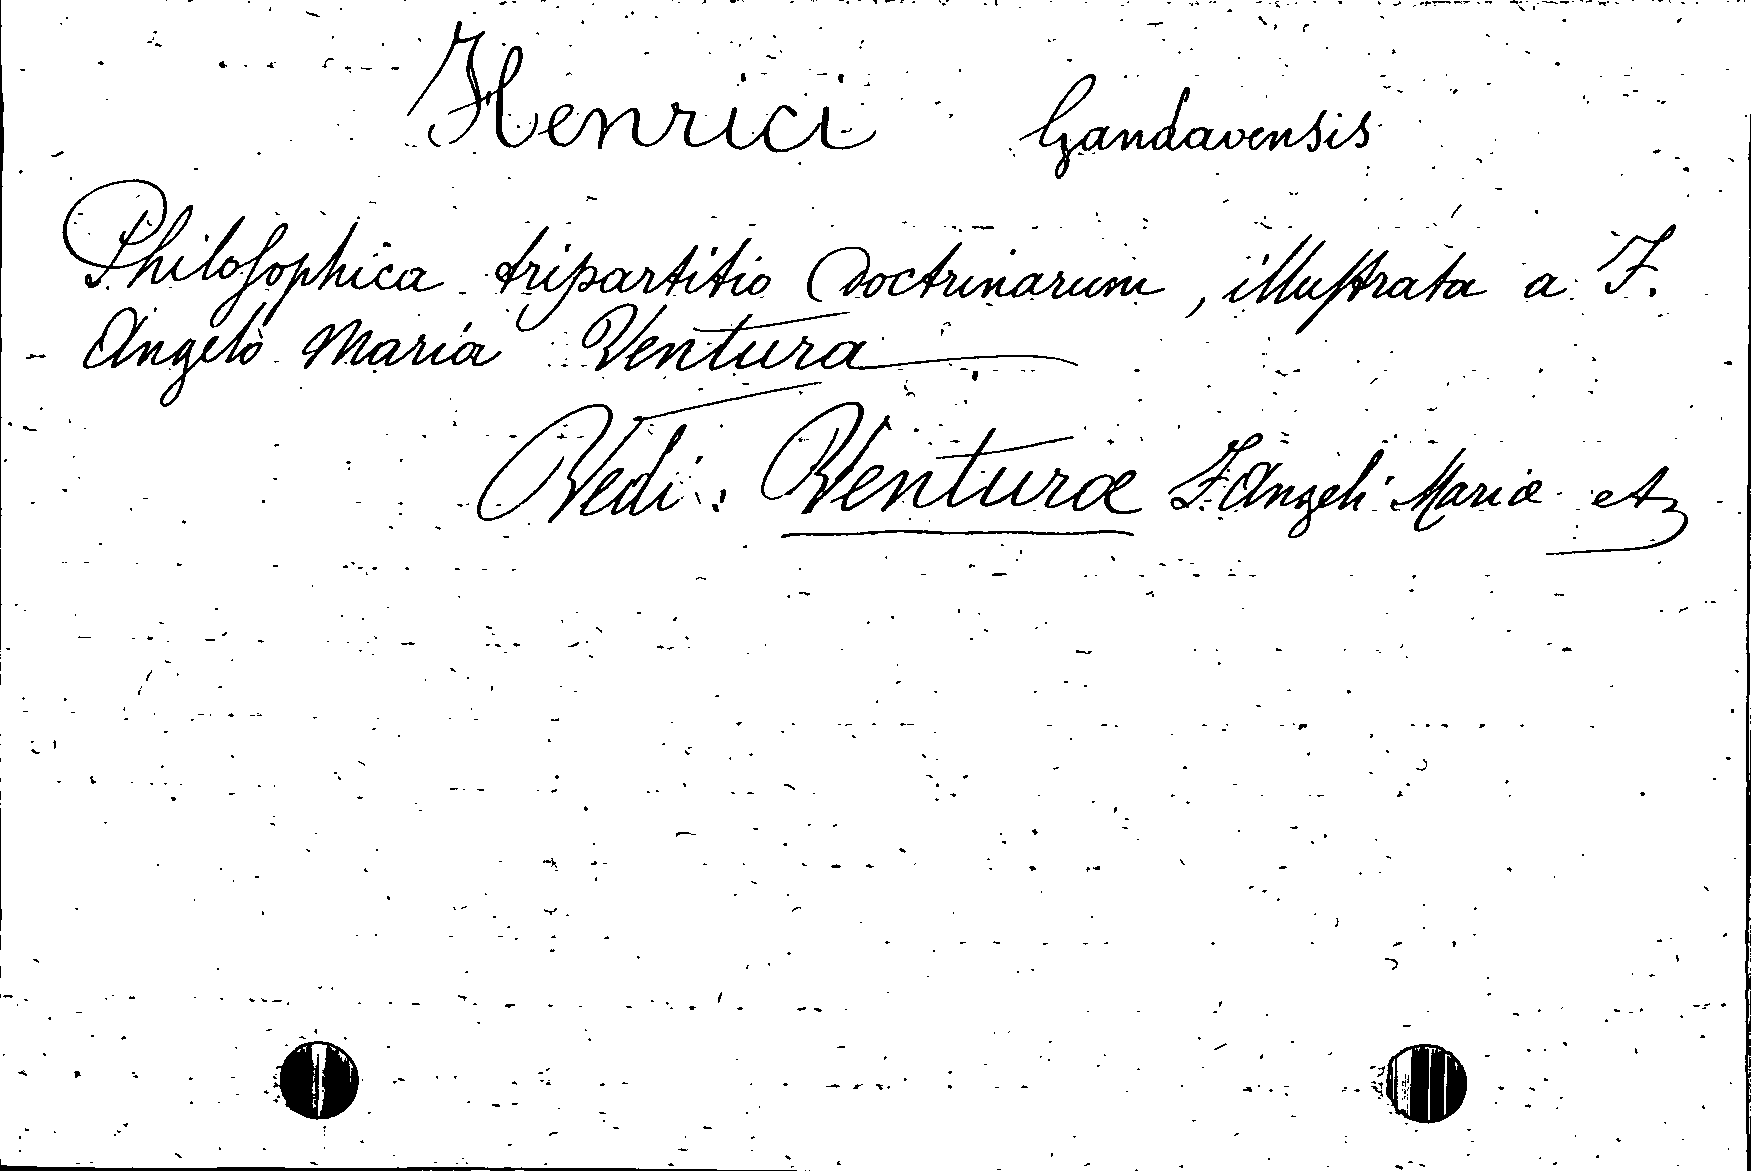 Henrici Gandavensis
Philosophica tripartitio Doctrinarum, illustrata a F.
Angelo Maria Ventura
Vedi: Venturæ F. Angeli Mariæ etc